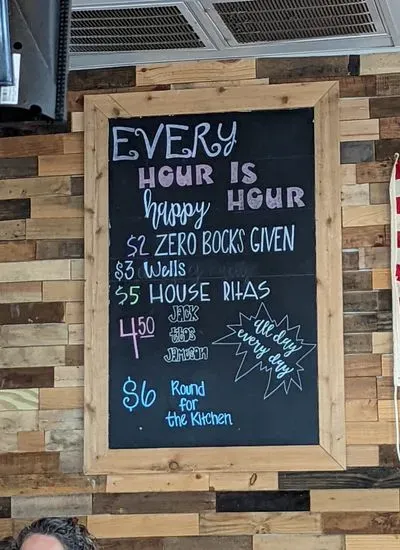 EVERY
HOUR IS
happy HOUR
$2 ZERO BOCKS GIVEN
$3 Wells
$5 HOUSE RITAS
4.50 JACK
titos
JAMESON
All day
every day
$6 Round
for
the Kitchen